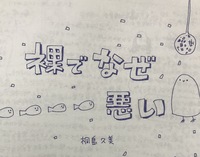 裸でなぜ
悪い
桐島久美